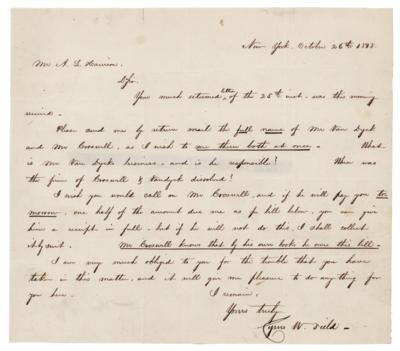 New York, October 26th 1838.
Mr A. L.
Your much esteemed letter of the 25th inst. was this morning
receivd.
Please send me by return mail the full name of Mr Van Dyck
and Mr Croswell, as I wish to sue them both at once. What
is Mr Van Dycks business and is he responsible? When was
the firm of Croswell & Vandyck disolved?
I wish you would call on Mr Croswell, and if he will pay you to
morrow, one half of the amount due me as pr bill below, you can give
him a receipt in full - but if he will not do this, I shall collect
it by suit. Mr Croswell knows that by his own books he owes this bill.
I am very much obliged to you for the trouble that you have
taken in this matter, and it will give me pleasure to do any thing for
you here.
I remain,
Yours truly
Cyrus W. Field